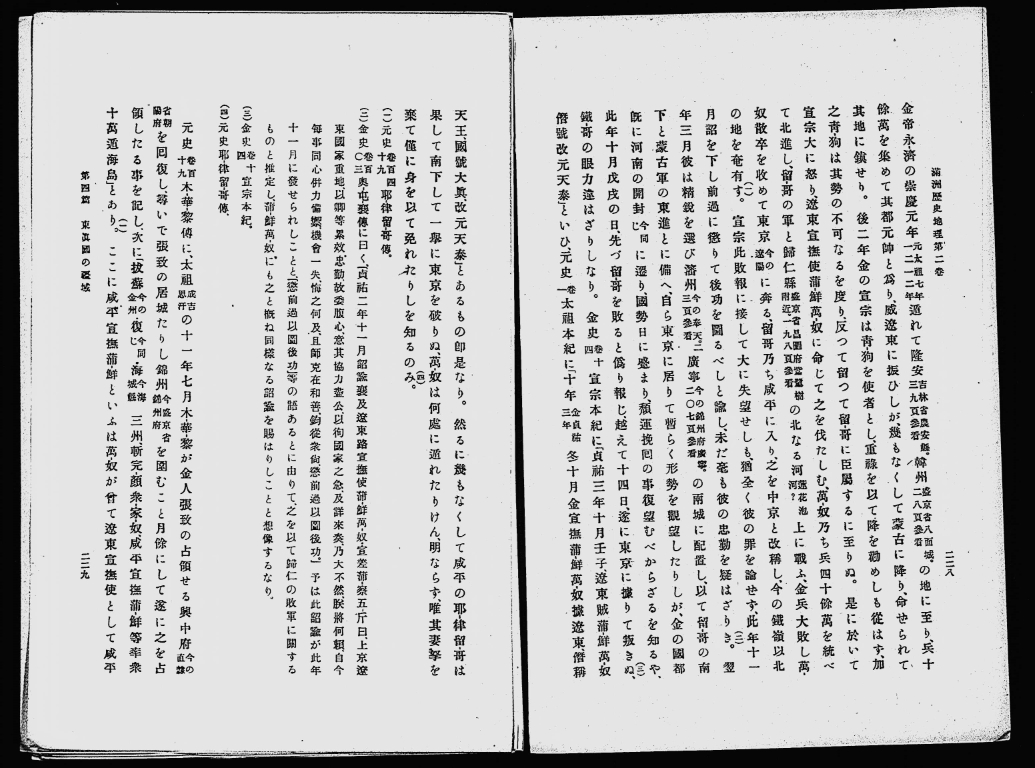 滿洲歷史地理第二卷
二二八
金帝永濟の崇慶元年元太祖七年一二一二年遁れて隆安吉林省農安縣。三九頁參看韓州盛京省八面城。二八頁參看の地に至り、兵十
餘萬を集めて其都元帥と爲り、威遼東に振ひしが、幾もなくして蒙古に降り、命せられて
其地に鎭せり。後二年金の宣宗は靑狗を使者とし、重祿を以て降を勸めしも從はす、加
之靑狗は其勢の不可なるを度り、反つて留つて留哥に臣屬するに至りぬ。是に於いて
宣宗大に怒り、遼東宣撫使蒲鮮萬奴に命じて之を伐たしむ、萬奴乃ち兵四十餘萬を統べ
て北進し、留哥の軍と歸仁縣盛京省昌圖府附近。一九八頁參看の北なる河河?上に戰ふ、金兵大敗し、萬
奴散卒を收めて東京今の遼陽に奔る、留哥乃ち咸平に入り、之を中京と改稱し、今の鐵嶺以北
の地を奄有す。(一)宣宗此敗報に接して大に失望せしも、猶全く彼の罪を論せす、此年十一
月詔を下し前過に懲りて後功を圖るべしと諭し、未だ毫も彼の忠勤を疑はざりき。(二)翌
年三月彼は精銳を選び瀋州今の奉天。三頁參看廣寧今の錦州府廣寧。二〇七頁參看の南城に配置し、以て留哥の南
下と蒙古軍の東進とに備へ、自ら東京に居りて暫らく形勢を觀望したりしが、金の國都
旣に河南の開封今同じに遷り、國勢日に蹙まり、頽運挽回の事復望むべからざるを知るや、
此年十月戊戌の日、先づ留哥を敗ると僞り報じ、越えて十四日、遂に東京に據りて叛きぬ、(三)
鐵哥の眼力違はざりしなり。金史卷十四宣宗本紀に「貞祐三年十月壬子遼東賊蒲鮮萬奴
僭號改元天泰」といひ、元史卷一太祖本紀に「十年金貞祐三年冬十月金宣撫蒲鮮萬奴據遼東僭稱
天王、國號大眞、改元天泰」とあるもの卽是なり。然るに幾もなくして咸平の耶律留哥は
果して南下して一擧に東京を破りぬ、萬奴は何處に遁れたりけん、明ならす、唯其妻孥を
棄て僅に身を以て免れたりしを知るのみ。(四)
(一)元史卷百四十九耶律留哥傳。
(二)金史卷百〇三奧屯襄傳に曰く、「貞祐二年十一月詔諭襄及遼東路宣撫使蒲鮮萬奴宣差蒲察五斤曰、上京遼
東國家重地以卿等累效忠勤故委腹心、意其協力盡公以徇國家之急、及詳來奏、乃大不然朕將何賴、自今
每事同心併力備禦機會一失、悔之何及、且師克在和善鈞從衆尙懲前過以圖後功、」予は此詔諭が此年
十一月に發せられしことと「懲前過以圖後功」等の語あるとに由りて、之を以て歸仁の敗軍に關する
ものと推定し、蒲鮮萬奴に」も之と槪ね同樣なる詔諭を賜はりしことと想像するなり。
(三)金史卷十四宣宗本紀。
(四)元史耶律留哥傳。
元史卷百十九木華黎傳に、太祖成吉思汗の十一年七月木華黎が金人張致の占領せる興中府今の直隸省朝陽府
を回復し、尋いで張致の居城たりし錦州今盛京省錦州府を圍むこと月餘にして遂に之を占
領したる事を記し、次に「拔蘇今の金州復今同じ海今海城縣三州、斬完顏衆家奴、咸平宣撫蒲鮮等率衆
十萬遁海島」とあり。(一)ここに咸平宣撫蒲鮮といふは萬奴が曾て遼東宣撫使として咸平
第四篇 東眞國の疆域
二二九